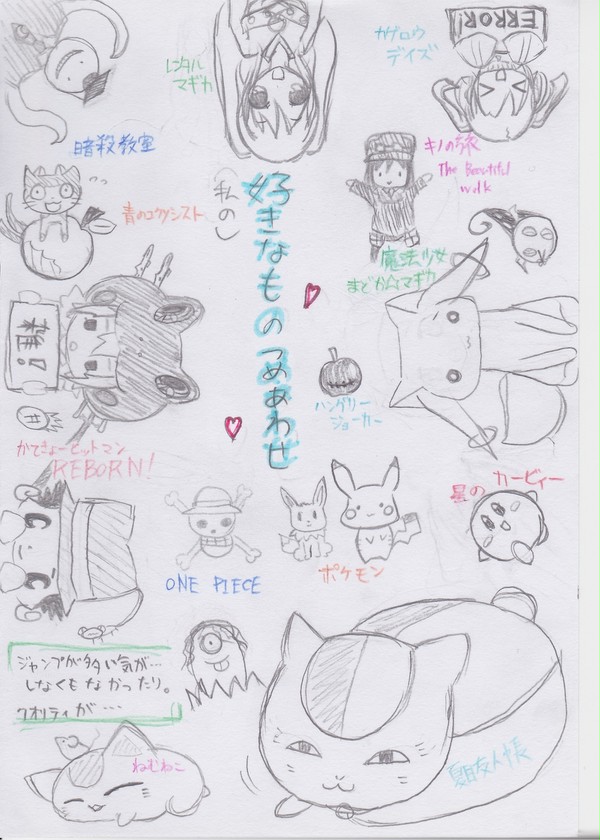 レンタル
マギカ
カゲロウ
デイズ
ERROR!
暗殺教室
キノの旅
The Beautiful
World
青のエクソシスト
(私の)
好きなものつめあわせ
魔法少女
まどか☆マギカ
雑!
ハングリー
ジョーカー
かてきょーヒットマン
REBORN!
星のカービィー
ONE PIECE
ポケモン
ジャンプが多い気が…
しなくもなかったり。
クオリティが…
ねむねこ
夏目友人帳